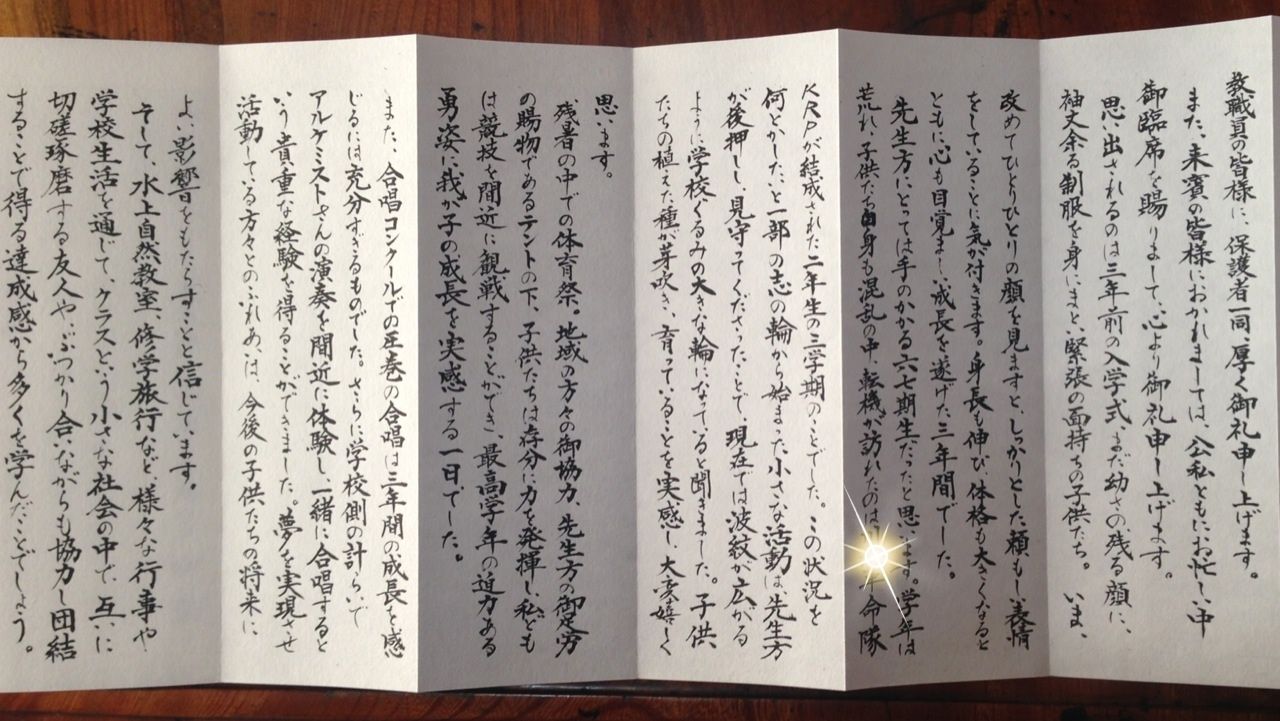 教職員の皆様に、保護者一同、厚く御礼申し上げます。
また、来賓の皆様におかれましては、公私ともにお忙しい中
御臨席を賜りまして、心より御礼申し上げます。
思い出されるのは三年前の入学式。まだ幼さの残る顔に、
袖丈余る制服を身にまとい緊張の面持ちの子供たち。いま、
改めてひとりひとりの顔を見ますと、しっかりとした頼もしい表情
をしていることに気が付きます。身長も伸び、体格も大きくなると
ともに、心も目覚ましい成長を遂げた三年間でした。
先生方にとっては手のかかる六七期生だったと思います。学年は
荒れ、子供たち自身も混乱の中、転機が訪れたのは 命隊
KRPが結成された二年生の三学期のことでした。この状況を
何とかしたいと一部の志の輪から始まった小さな活動は、先生方
が後押しし、見守ってくださったことで、現在では波紋が広がる
ように学校ぐるみの大きな輪になっていると聞きました。子供
たちの植えた種が芽吹き、育っていることを実感し、大変嬉しく
思います。
残暑の中での体育祭。地域の方々の御協力、先生方の御足労
の賜物であるテントの下、子供たちは存分に力を発揮し、私ども
は競技を間近に観戦することができ、最高学年の迫力ある
勇姿に我が子の成長を実感する一日でした。
また、合唱コンクールでの圧巻の合唱は三年間の成長を感
じるには充分すぎるものでした。さらに学校側の計らいで
アルケミストさんの演奏を間近に体験し、一緒に合唱すると
いう貴重な経験を得ることができました。夢を実現させ
活動している方々とのふれあいは、今後の子供たちの将来に
よい影響をもたらすことと信じています。
そして、水上自然教室、修学旅行など、様々な行事や
学校生活を通じて、クラスという小さな社会の中で、互いに
切磋琢磨する友人や、ぶつかり合いながらも協力し団結
することで得る達成感から多くを学んだことでしょう。